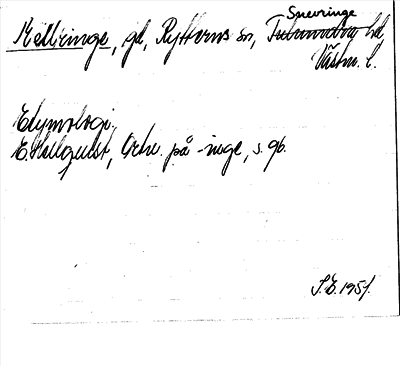 Snevringe
Kellringe, gd, Rytterns sn, Tuhundra hd,
Västm. l.
Etymologi:
E. Hellquist, Ortn. på -inge, s. 96.
S.E. 1951.